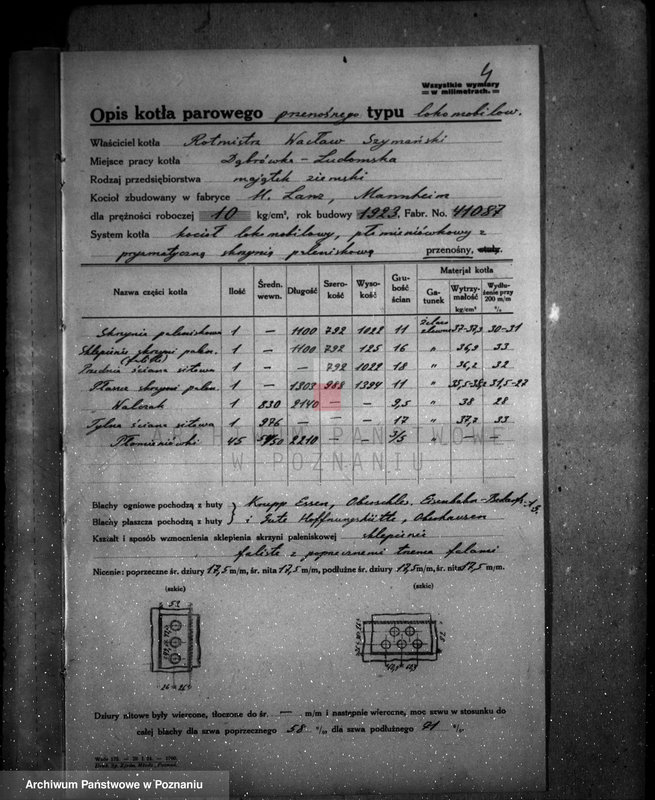 4
Wszystkie wymiary
= w milimetrach. =
Opis kotła parowego przenośnego typu lokomobilow.
Właściciel kotła Rotmistrz Wacław Szymański
Miejsce pracy kotła Dąbrówka-Ludomska
Rodzaj przedsiębiorstwa majątek ziemski
Kocioł zbudowany w fabryce H. Lanz, Mannheim
dla prężności roboczej 10 kg/cm², rok budowy 1923. Fabr. No. 41087
System kotła kocioł lokomobilowy, płomieniówkowy z
pryzmatyczną skrzynią paleniskową przenośny, stały.
Nazwa części kotła Ilość Średn. wewn. Długość Szerokość Wysokość Grubość ścian Materjał kotła Gatunek Wytrzymałość kg/cm² Wydłużenie przy 200 m/m %
Skrzynia paleniskowa 1 — 1100 792 1022 11 żelazo zlewne 37-37,3 30-31
Sklepienie skrzyni palen. (faliste) 1 — 1100 792 125 16 " 36,9 33
Przednia ściana sitowa 1 — — 792 1022 18 " 36,2 32
Płaszcz skrzyni palen. 1 — 1303 988 1394 11 " 35,5-38,2 31,5-27
Walczak 1 830 2140 — — 9,5 " 38 28
Tylna ściana sitowa 1 976 — — — 17 " 37,2 33
Płomieniówki 45 50 2210 — — 3/5 " — —
ARCHIWUM PAŃSTWOWE
W POZNANIU
Blachy ogniowe pochodzą z huty } Krupp Essen, Oberschles. Eisenbahn-Bedarfs
Blachy płaszcza pochodzą z huty } i Gute Hoffnungshütte, Oberhausen
Kształt i sposób wzmocnienia sklepienia skrzyni paleniskowej sklepienie
faliste z poprzecznemi trzema falami
Nicenie: poprzeczne śr. dziury 17,5 m/m, śr. nita 17,5 m/m, podłużne śr. dziury 17,5 m/m, śr. nita 17,5 m/m.
(szkic) (szkic)
52
26 26
52
Dziury nitowe były wiercone, tłoczone do śr. — m/m i następnie wiercone, moc szwu w stosunku do
całej blachy dla szwa poprzecznego 58 %, dla szwa podłużnego 71 %.
Archiwum Państwowe w Poznaniu